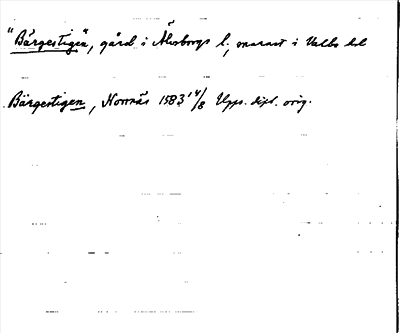 "Bärgestigen", gård i Älvsborgs l., snarast i Valbo hd
Bärgestigen, Nornäs 1583 14/8 Upps. dipl. orig.